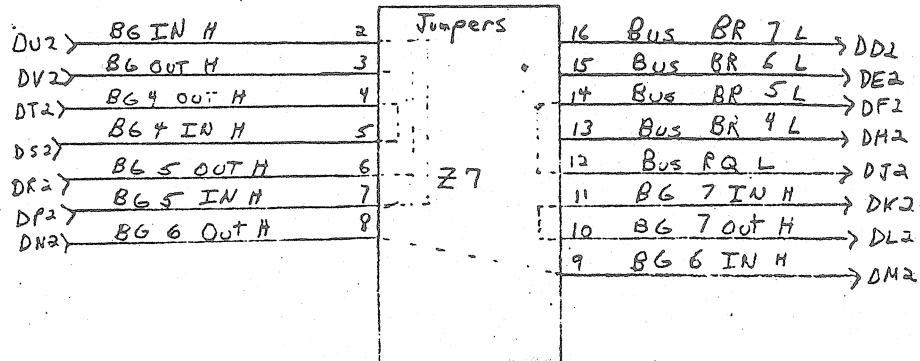 Jumpers
DU2 BG IN H 2
DV2 BG OUT H 3
DT2 BG 4 OUT H 4
DS2 BG 4 IN H 5
DR2 BG 5 OUT H 6
DP2 BG 5 IN H 7
DN2 BG 6 Out H 8
Z7
16 Bus BR 7 L DD2
15 Bus BR 6 L DE2
14 Bus BR 5 L DF2
13 Bus BR 4 L DH2
12 Bus RQ L DJ2
11 BG 7 IN H DK2
10 BG 7 Out H DL2
9 BG 6 IN H DM2